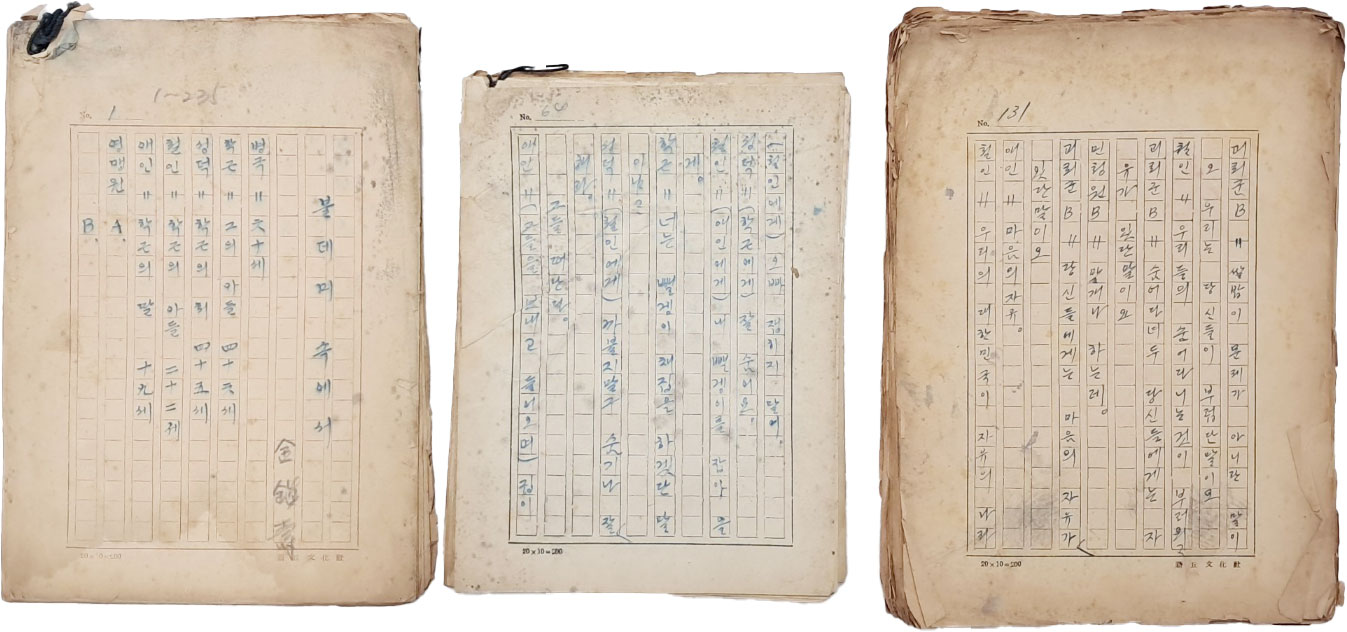 1~235
No. 1
불데미 속에서
金鎭壽
병국 〃 六十세
학근 〃 그의 아들 四十六세
성덕 〃 학근의 처 四十五세
철인 〃 학근의 아들 二十二세
애인 〃 학근의 딸 十九세
연맹원 A
B
20×10=200
文化社
No.
(철인에게) 오빠 잽히지 말어.
성덕 〃 (학근에게) 잘 숨어요.
철인 〃 (애인에게) 내 빨겡이를 잡아 올
게.
학근 〃 너는 빨겡이 재집을 하겠단 말
이냐
성덕 〃 (철인에게) 까불지말구 숨기나 잘
해라.
그들 떠난다.
애인 〃 (그들을 보내고 들어오며)
20×10=200
No. 131
괴뢰군 B 〃 쌀밥이 문제가 아니란 말이
오 우리는 당신들이 부럽단말이요
철인 〃 우리들의 숨어다니는 것이 부러워요
괴뢰군 B 〃 숨어다녀두 당신들에게는 자
유가 있단말이요
민청원 B 〃 말개나 하는레.
괴뢰군 B 〃 당신들에게는 마음의 자유가
있단말이오
애인 〃 마음의 자유.
철인 〃 우리의 대한민국이 자유의 나라
20×10=200
文化社